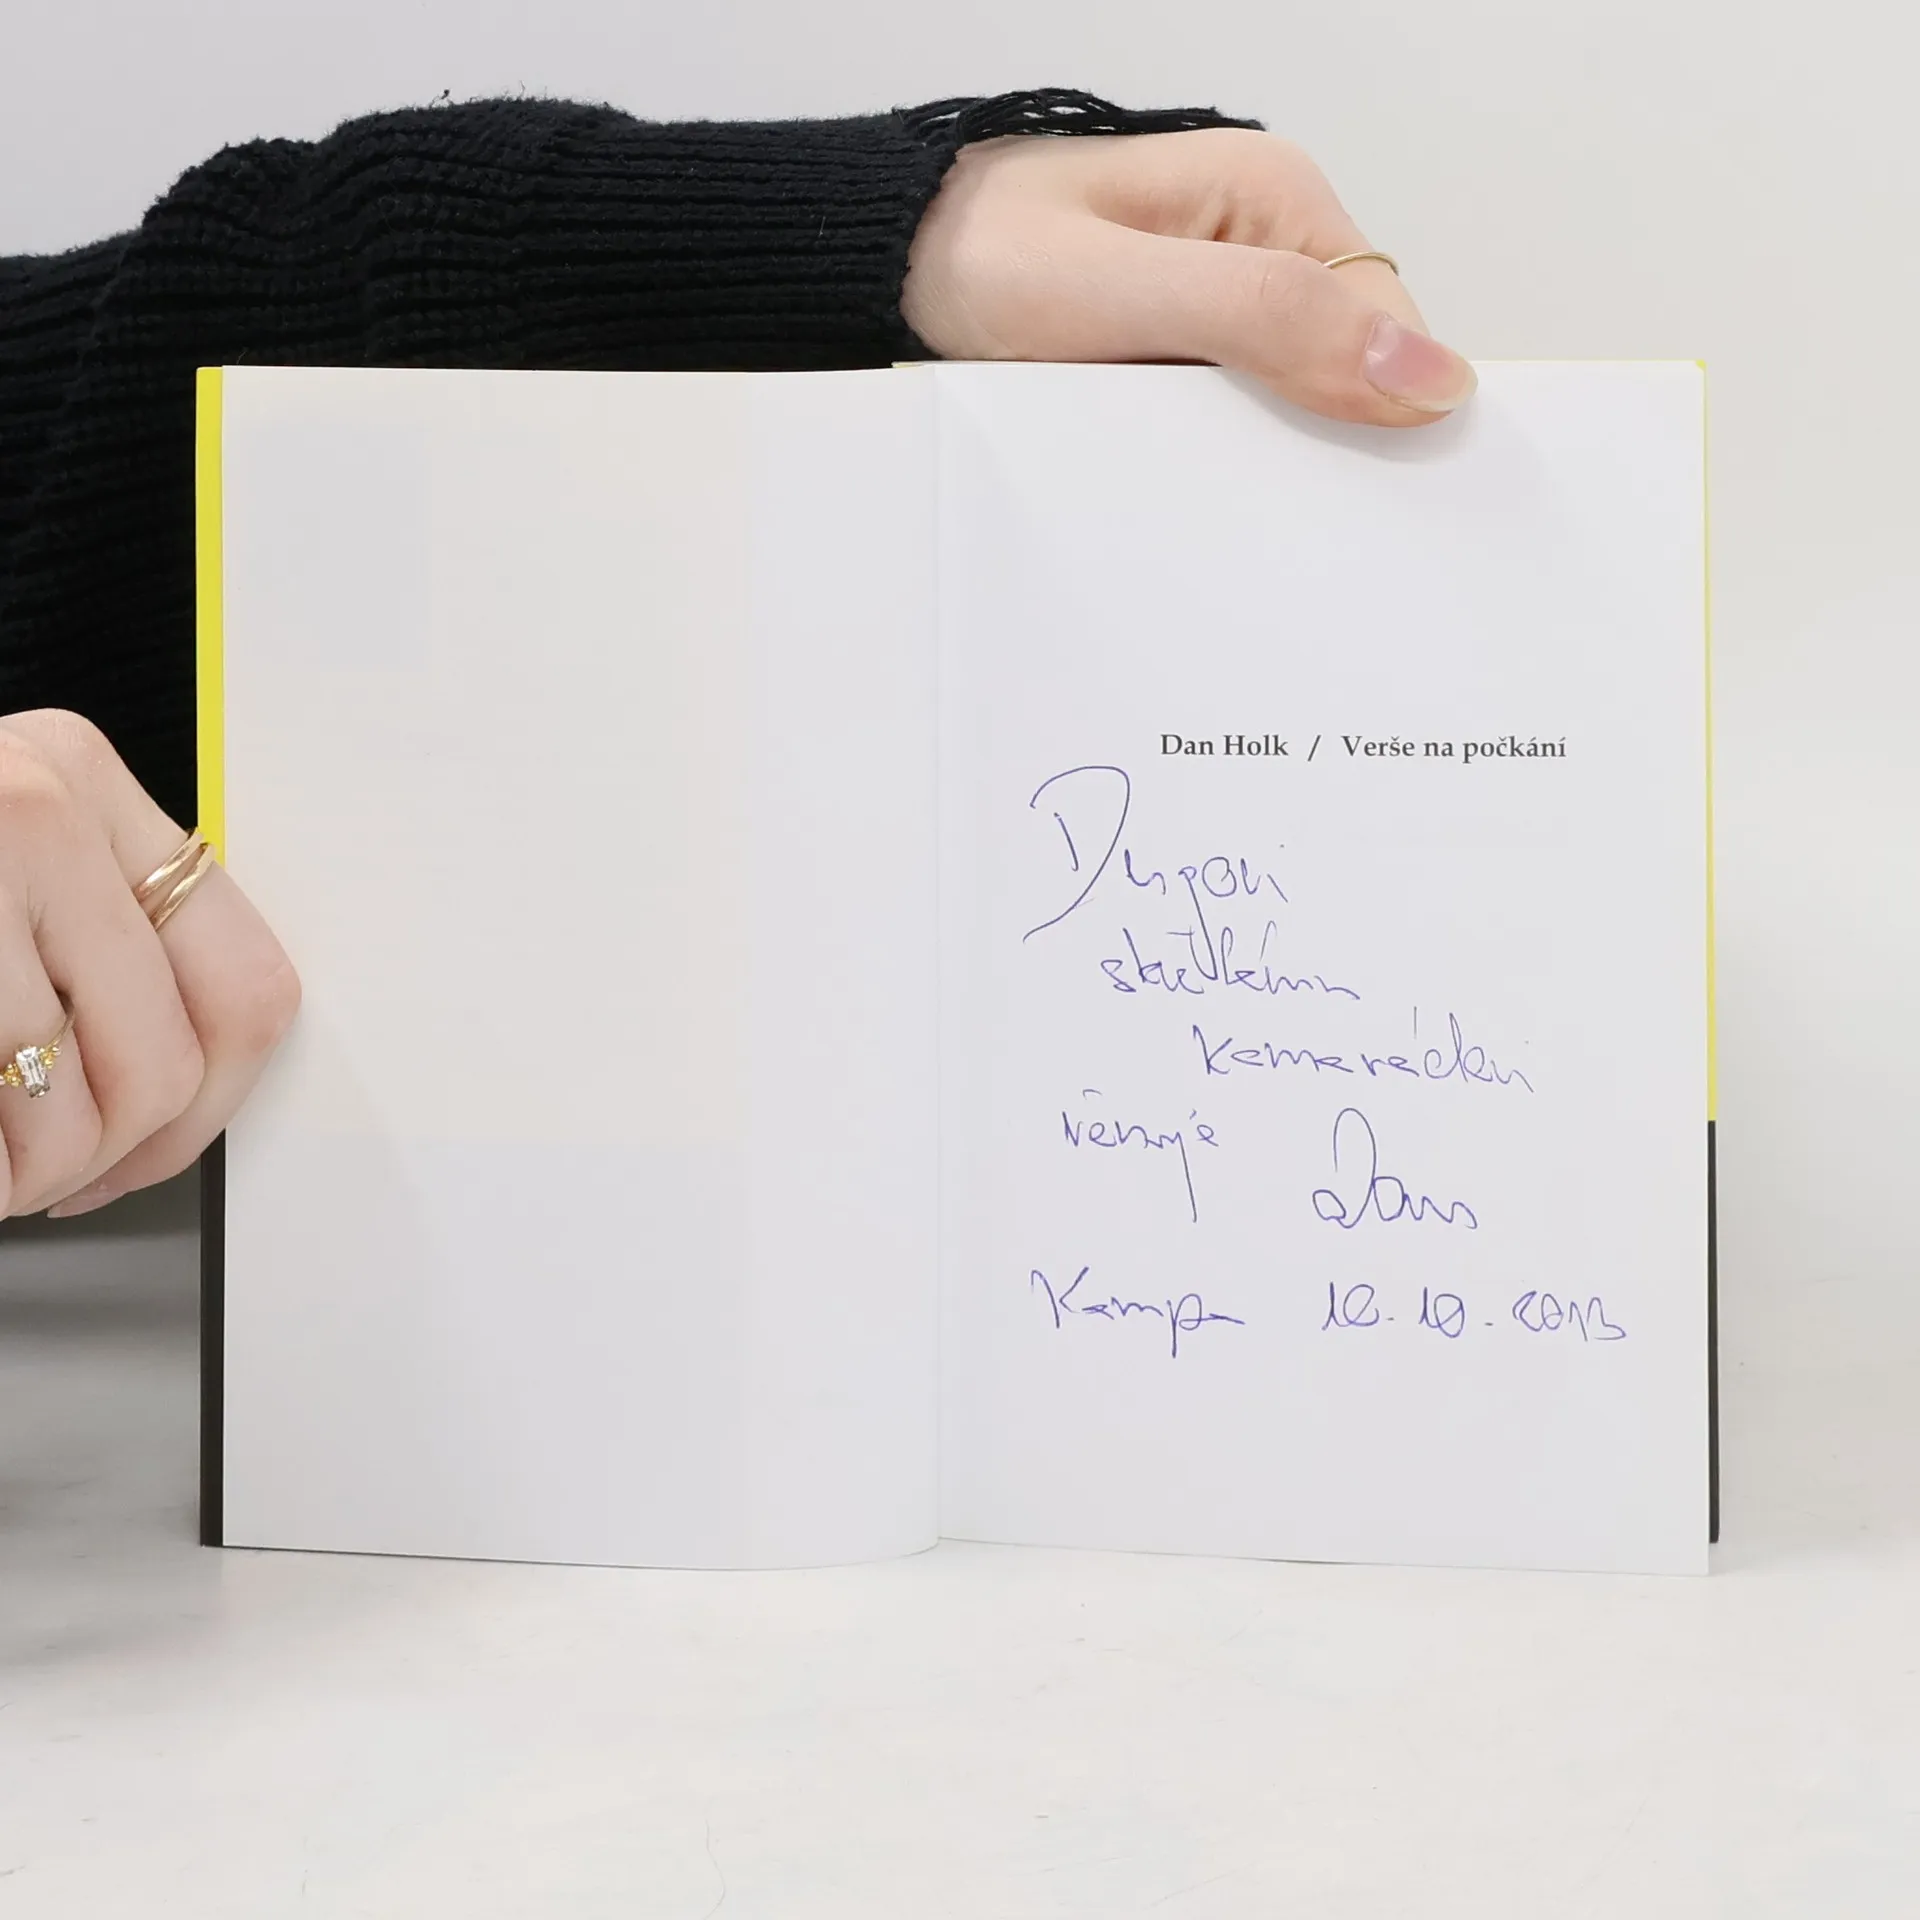 Dan Holk / Verše na počkání
skvělému
kamarádovi
věnuje Dan
Kampa 10. 10. 2013